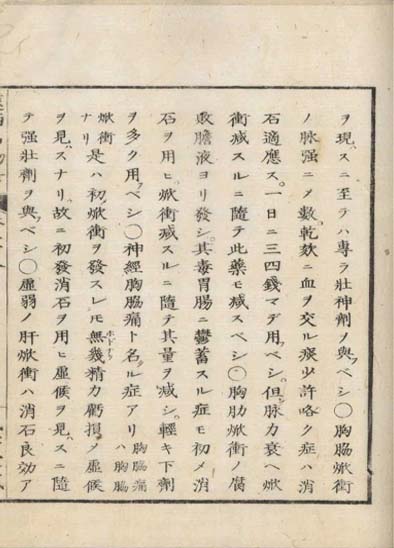 ヲ現スニ至テハ專ラ壮神劑ヲ與ベシ〇胸脇焮衝
ノ脉強ニメ數乾欬ニ血ヲ交ル痰少許咯ク症ハ消
石適應ス。一日ニ三四錢マデ用ベシ。但脉力衰ヘ焮
衝減スルニ隨テ此藥モ减スベシ〇胸肋焮衝ノ腐
敗膽液ヨリ發シ。其毒胃腸ニ鬱蓄スル症モ初メ消
石ヲ用ヒ焮衝减スルニ隨テ其量ヲ减シ。輕キ下劑
ヲ多ク用ベシ〇神經胸脇痛ト名ル症アリ胸脇痛ハ胸脇
焮衝ナリ是ハ初焮衝ヲ發スレモ無幾ホドナク精力虧損メ虛候
ヲ見スナリ。故ニ初發消石ヲ用ヒ虛候ヲ見スニ隨
テ强壮劑ヲ與ベシ〇虛弱ノ肝焮衝ハ消石良効ア